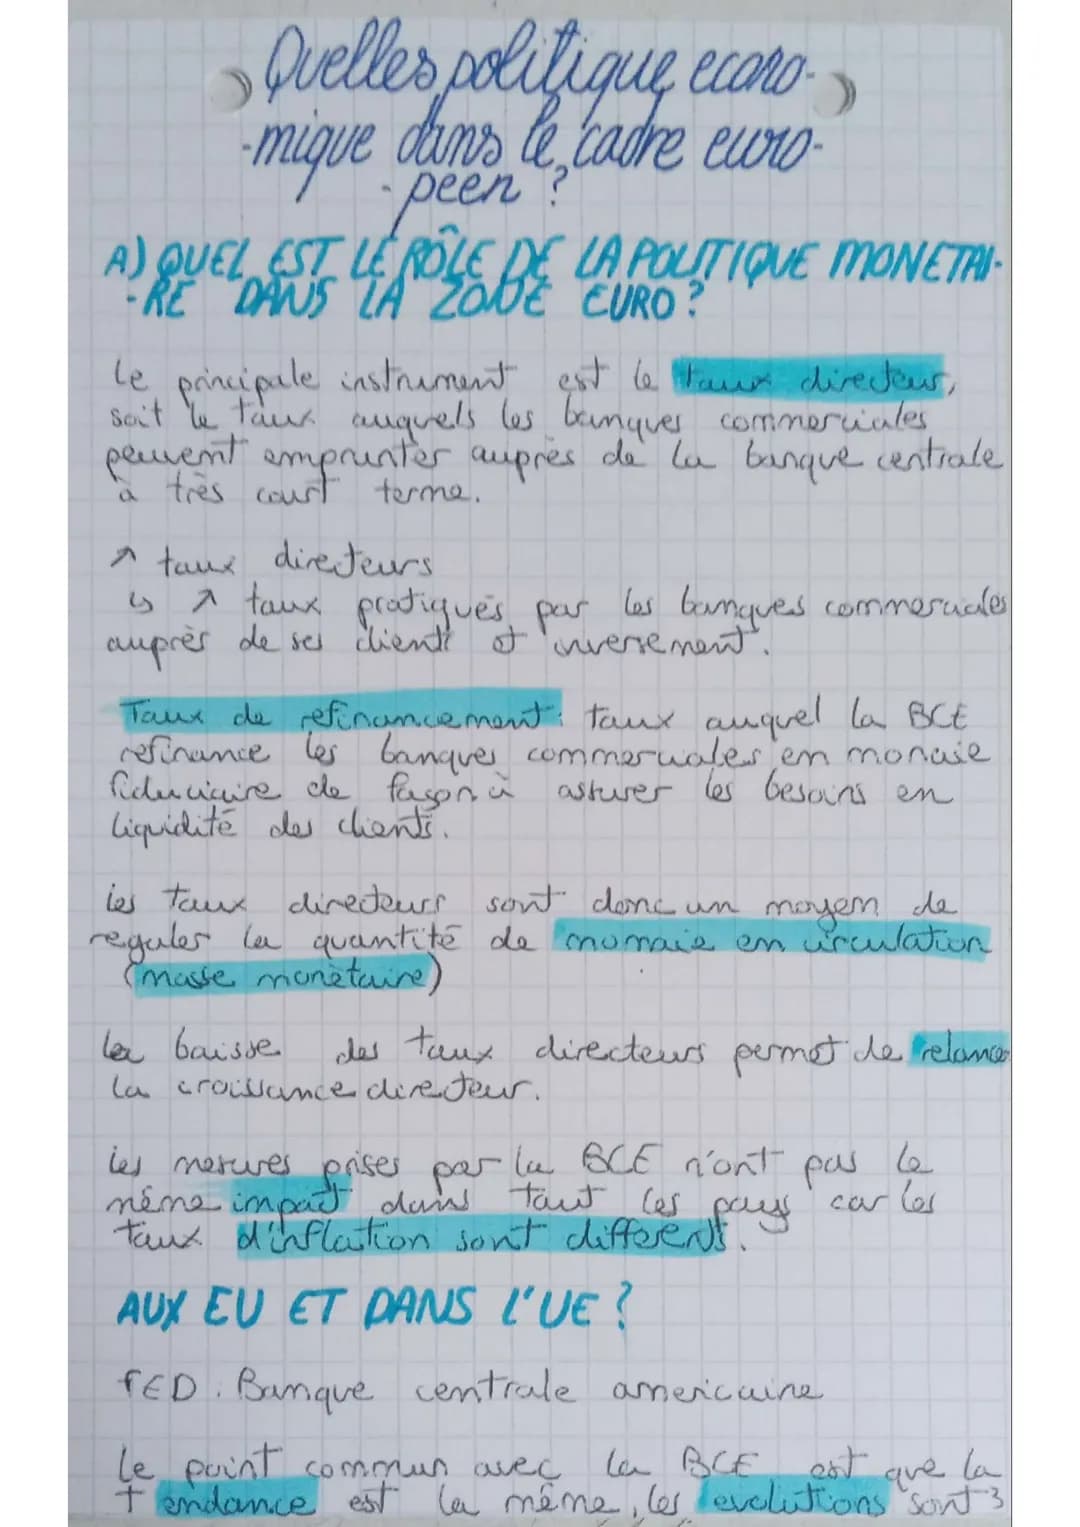 Quelles politique écono-
-mique dans le cadre euro-
-peen ?
A) QUEL EST LE RÔLE DE LA POLITIQUE MONETAI-
-RE DANS LA ZONE EURO ?
Le principale instrument est le taux directeur,
soit le taux auquels les banques commerciales
peuvent emprunter auprès de la banque centrale
à très court terme.
↗ taux directeurs
↳ ↗ taux pratiqués par les banques commerciales
auprès de ses clients et inversement.
Taux de refinancement : taux auquel la BCE
refinance les banques commerciales en monaie
fiduciaire de façon à assurer les besoins en
liquidité des clients.
Les taux directeurs sont donc un moyen de
reguler la quantité de monnaie en circulation
(masse monétaire)
La baisse des taux directeurs permet de relance
la croissance directeur.
Les mesures prises par la BCE n'ont pas le
même impact dans tout les pays car les
taux d'inflation sont différents.
AUX EU ET DANS L'UE ?
FED : Banque centrale americaine
Le point commun avec la BCE est que la
tendance est la même, les evolutions sont